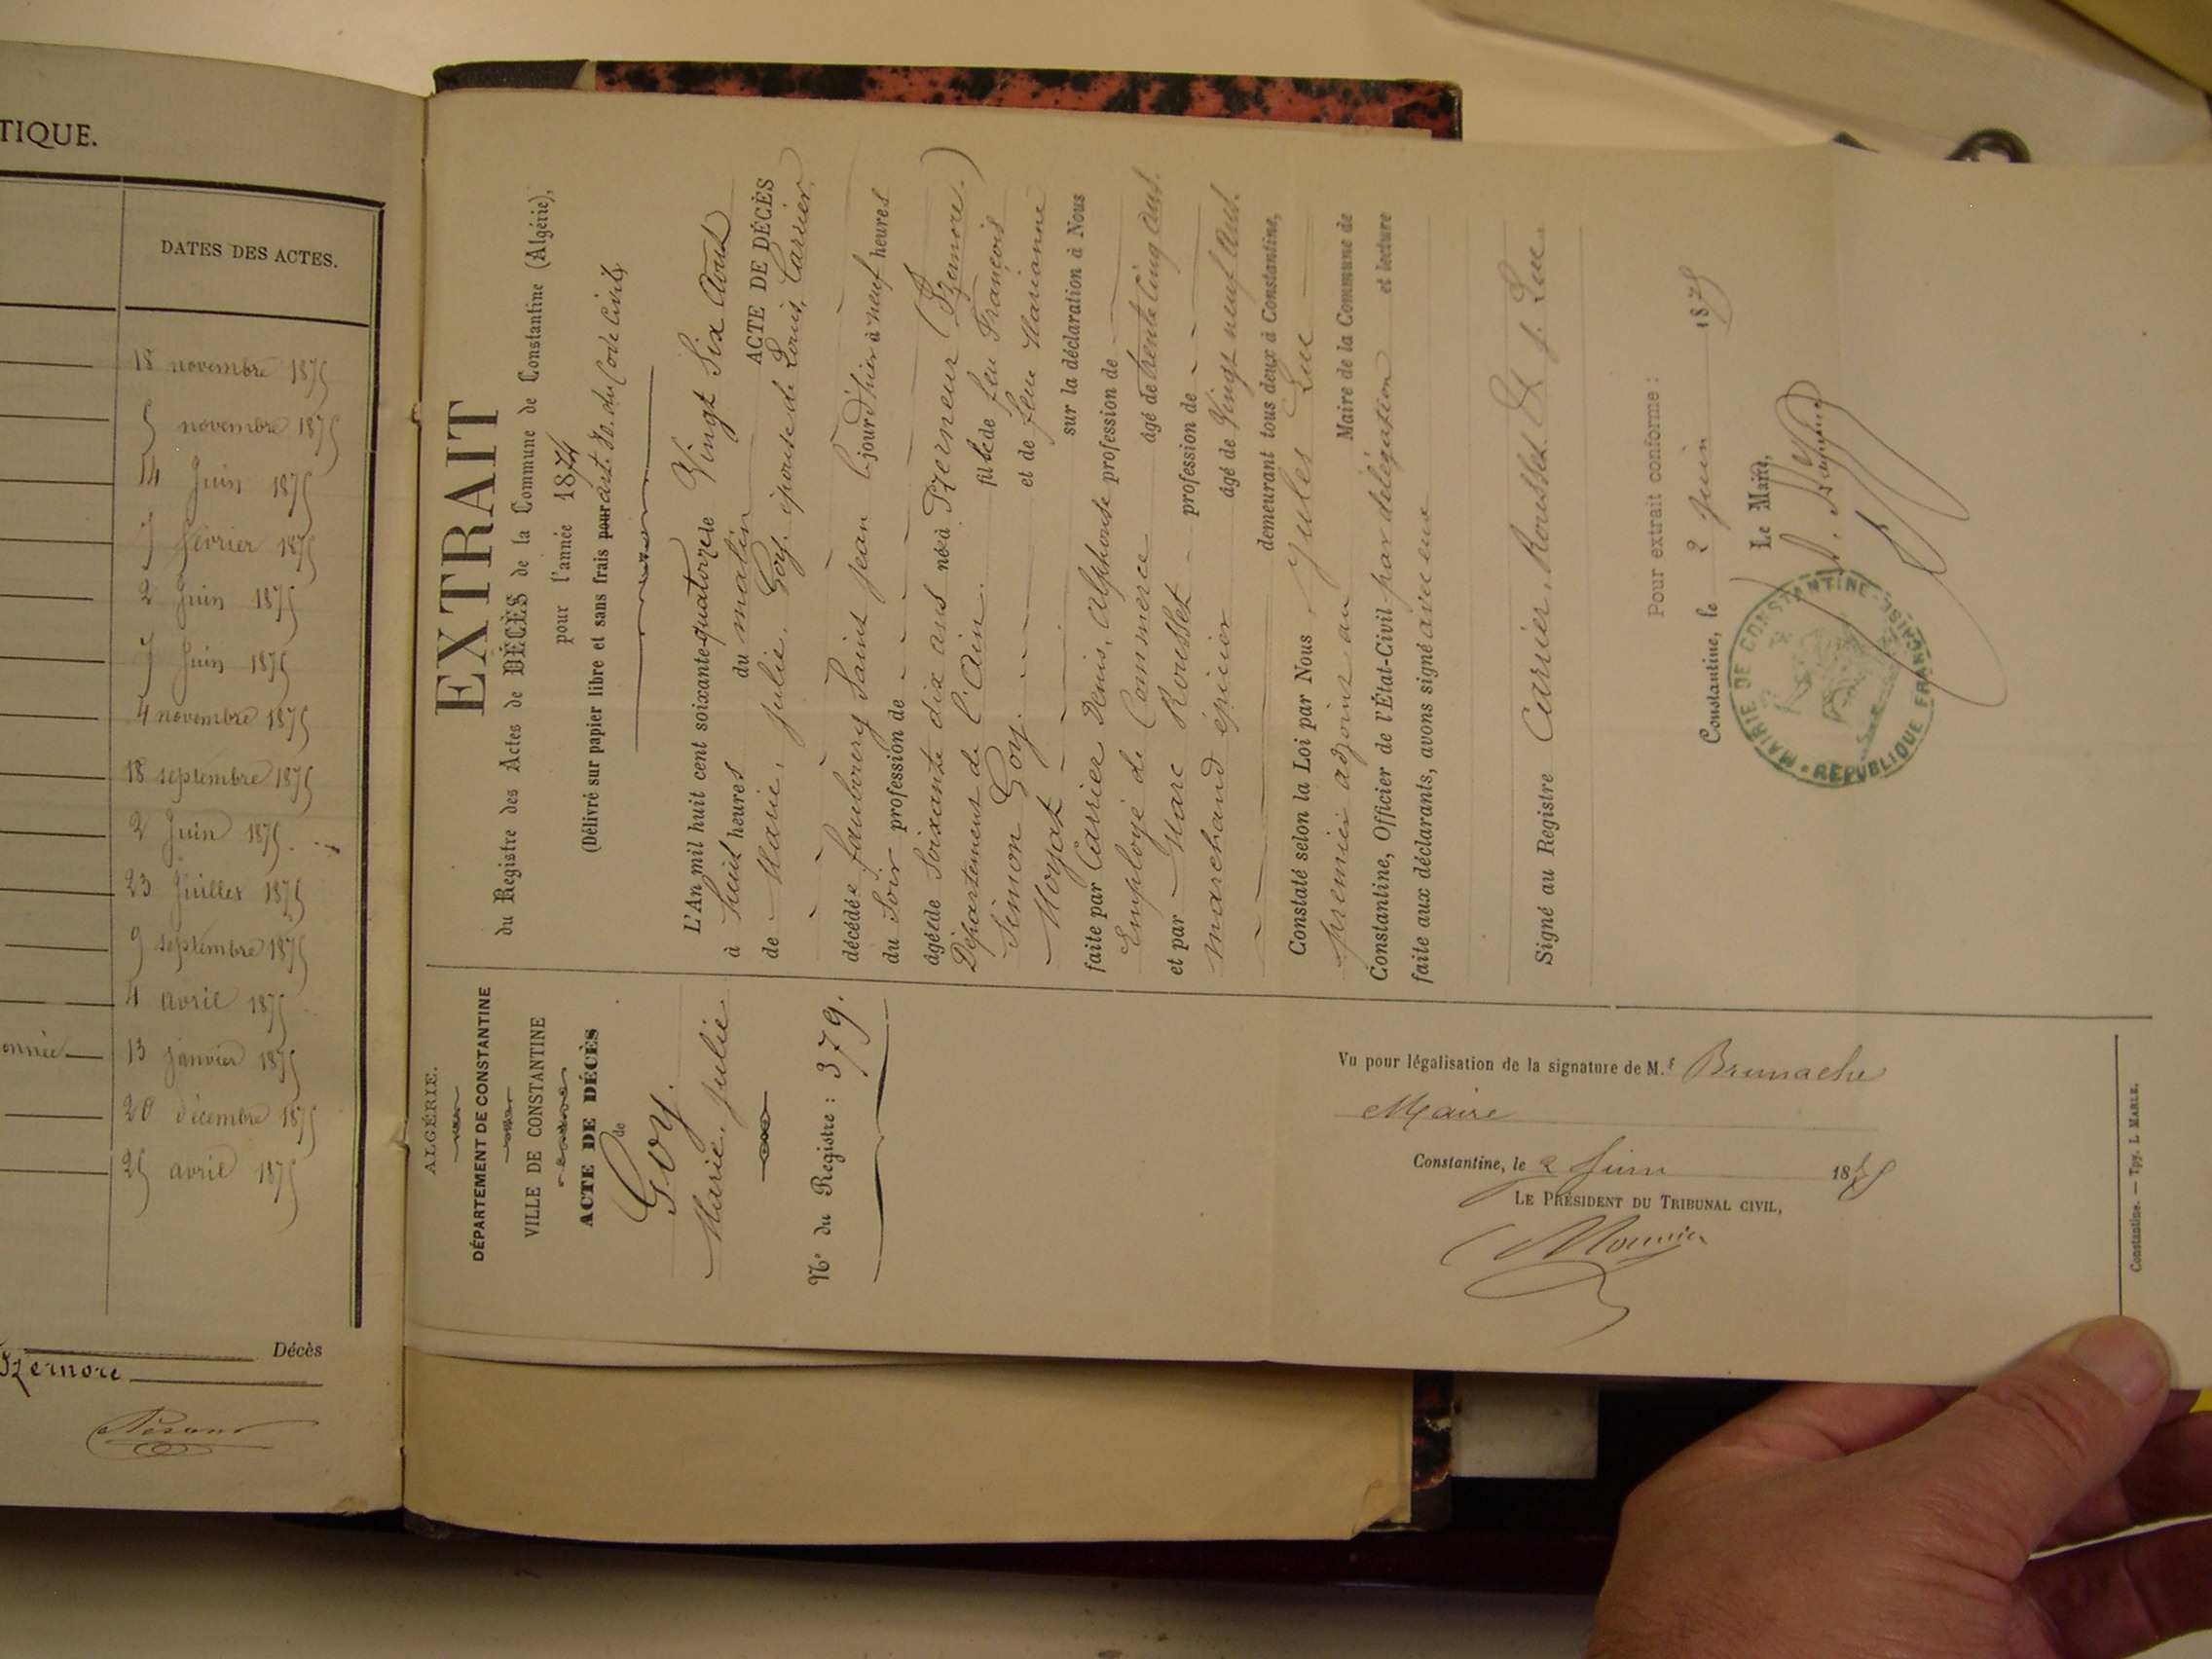 TIQUE.
DATES DES ACTES.
18 novembre 1875
5 novembre 1875
14 Juin 1875
7 février 1875
2 Juin 1875
7 Juin 1875
4 novembre 1875
18 septembre 1875
2 Juin 1875
23 Juillet 1875
9 septembre 1875
4 avril 1875
13 janvier 1875
20 décembre 1875
25 avril 1875
Décès
Izernore
ALGÉRIE.
DÉPARTEMENT DE CONSTANTINE
VILLE DE CONSTANTINE
ACTE DE DÉCÈS
de
Goy.
Marie, Julie
N° du Registre : 379.
Vu pour légalisation de la signature de M.r Brunache
Maire
Constantine, le 2 Juin 1875
LE PRÉSIDENT DU TRIBUNAL CIVIL,
Constantine. — Typ. L. MARLE.
EXTRAIT
du Registre des Actes de DÉCÈS de la Commune de Constantine (Algérie),
pour l'année 1874
(Délivré sur papier libre et sans frais pour art. 80. du Code Civil)
L'An mil huit cent soixante-quatorze Vingt Six Août
à huit heures du matin ACTE DE DÉCÈS
de Marie, Julie, Goy. épouse de Louis, Carrier.
décédée faubourg Saint Jean le jour d'hier à neuf heures
du soir profession de
âgée de Soixante dix ans née à Izerneur (Izernore.)
Département de l'Ain. fille de feu François
Simon Goy. et de feue Marianne
Moyat sur la déclaration à Nous
faite par Carrier Denis, Alphonse profession de
Employé de Commerce âgé de trente cinq ans.
et par Marc Rousset profession de
marchand épicier âgé de Vingt neuf ans.
demeurant tous deux à Constantine,
Constaté selon la Loi par Nous Jules Luc
premier adjoint au Maire de la Commune de
Constantine, Officier de l'État-Civil par délégation et lecture
faite aux déclarants, avons signé avec eux
Signé au Registre Carrier, Rousset & J. Luc.
Pour extrait conforme :
Constantine, le 2 Juin 1875
Le Maire,
MAIRIE DE CONSTANTINE
RÉPUBLIQUE FRANÇAISE